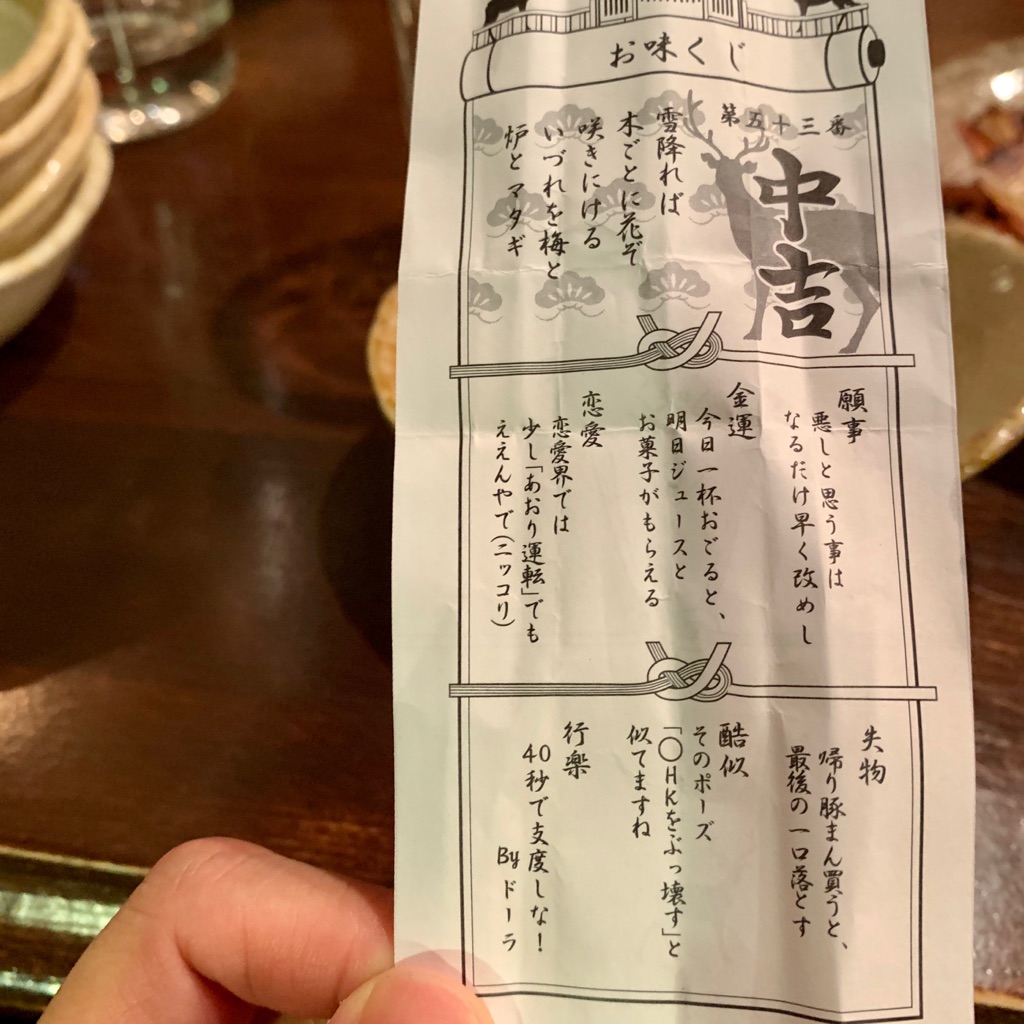 お味くじ
第五十三番
中吉
雪降れば
木ごとに花ぞ
咲きにける
いづれを梅と
炉とマタギ
願事
悪しと思う事は
なるだけ早く改めし
金運
今日一杯おごると、
明日ジュースと
お菓子がもらえる
恋愛
恋愛界では
少し「あおり運転」でも
ええんやで(ニッコリ)
失物
帰り豚まん買うと、
最後の一口落とす
酷似
そのポーズ
「〇HKをぶっ壊す」と
似てますね
行楽
40秒で支度しな!
By ドーラ